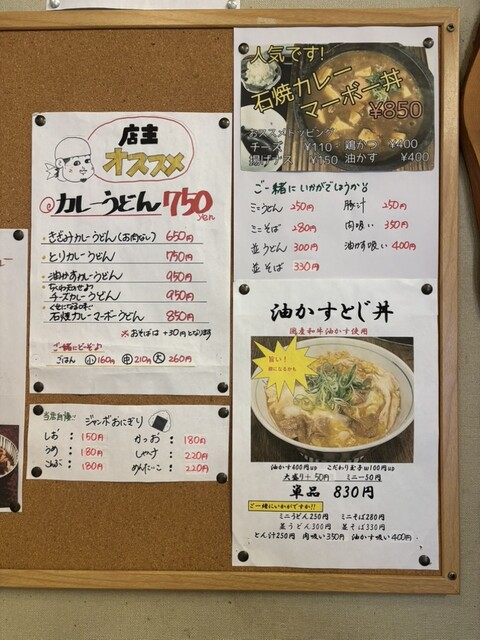 店主
オススメ
カレーうどん 750
きざみカレーうどん(お肉なし) 650円
とりカレーうどん 750円
油かすカレーうどん 950円
チーズカレーうどん 950円
石焼カレーマーボーうどん 850円
※おそばは +30円となります
ご一緒にどーぞ♪
ごはん 小 160円 中 210円 大 260円
ジャンボおにぎり
しお : 150円
うめ : 180円
こんぶ : 180円
かつお : 180円
しゃけ : 220円
めんたいこ : 220円
人気です!
石焼カレー
マーボー丼
¥850
おススメトッピング
チーズ ¥110 鶏かつ ¥400
揚げナス ¥150 油かす ¥400
ご一緒にいかがでしょうか
ミニうどん 250円
ミニそば 280円
並うどん 300円
並そば 330円
豚汁 250円
肉吸い 350円
油かす吸い 400円
油かすとじ丼
国産和牛油かす使用
旨い!
癖になるかも
油かす400円up こだわり玉子W100円up
大盛り+50円 ミニ-50円
単品 830円
ご一緒にいかがですか!!
ミニうどん250円 ミニそば280円
並うどん300円 並そば330円
とん汁250円 肉吸い350円 油かす吸い400円